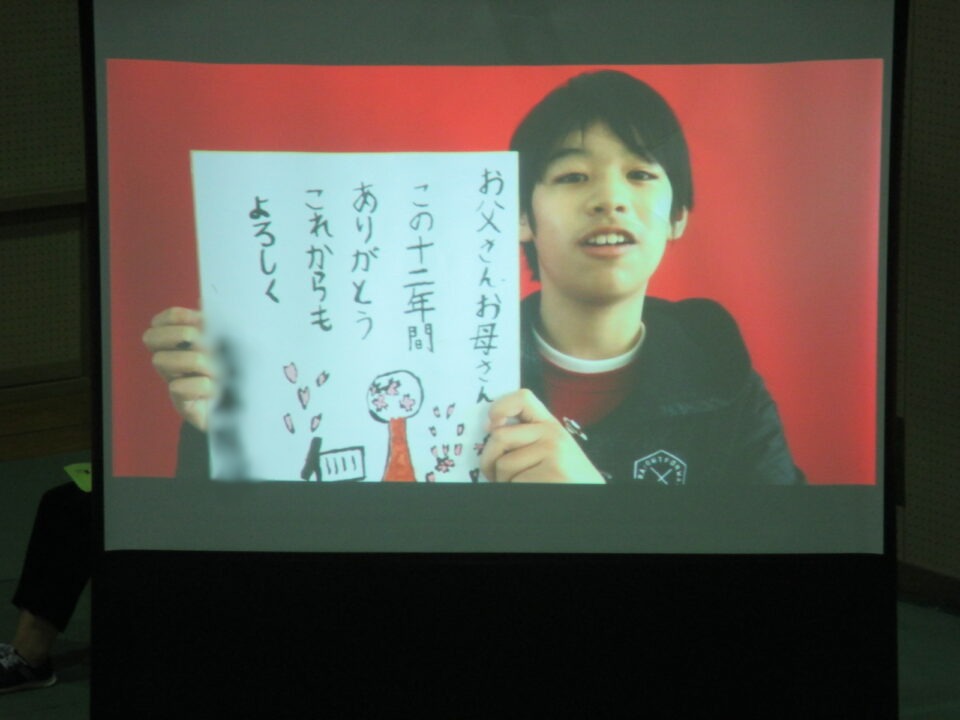 お父さんお母さん
この十二年間
ありがとう
これからも
よろしく